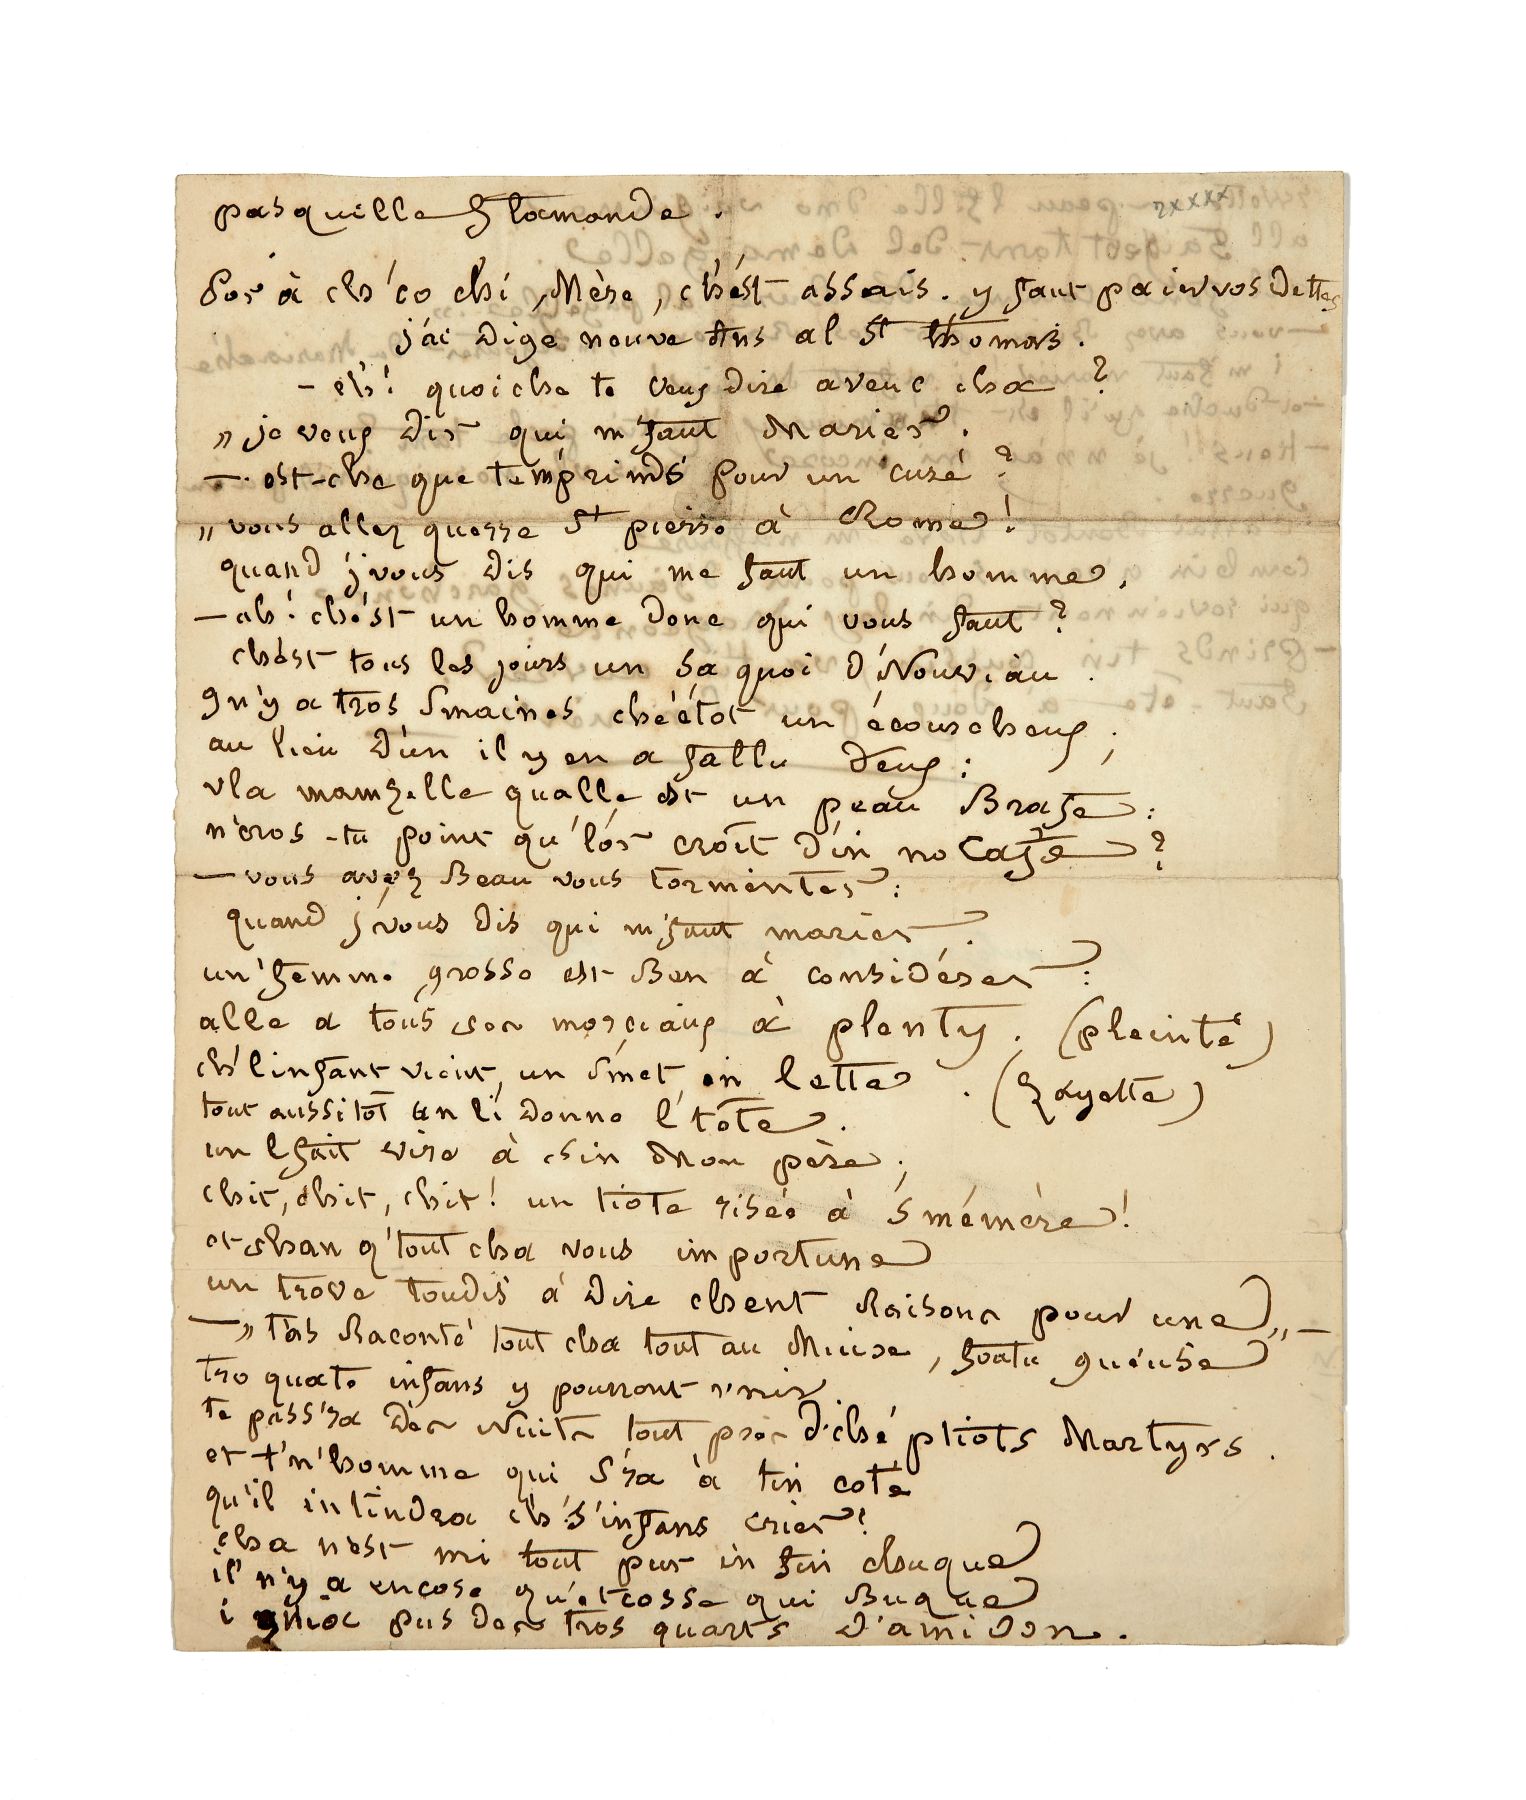 pasquille flamande.
Por à ch'co chi, Mère, ch'est assais. y faut païer vos Dettes
j'ai Dige neuve Ans al St thomas.
- eh! quoiche te veux Dire aveuc cha ?
„ je veux Dir qui m'faut Marier.
- est-che que te m'prinds pour un curé ?
„ vous allez querre St pierre à Rome !
quand j'vous Dis qui me faut un homme,
- ah ! ch'est un homme Donc qui vous faut ?
ch'est tous les jours un sa quoi D'Nouviau.
gn'y a tros s'maines ch'étot un écouscheux ;
au lieu D'un il y en a fallu Deux :
v'la mamzelle qu'alle est un peau Brafe :
n'cros-tu point qu'l'or croît D'in no Cafe ?
- vous avez Beau vous tormenter :
quand j'vous Dis qui m'faut marier.
un'femme grosse est Ben à considérer :
alle a tous ses morciaux à plenty. (pleinté)
ch'l'infant vient, un s'met en lette. (Layette)
tout aussitôt un li Donne l'tôte.
un l'fait vire à sin Mon père ;
chit, chit, chit ! un tiote risée à s'mémère !
et chan q'tout cha vous importune
un trove toudis à Dire chent Raisons pour une „ -
- „ t'as Raconté tout cha tout au Miux, foutu gueuse
tro quate infans y pourront v'nir.
te pass'ra Des Nuits tout près D'ché ptiots Martyrs.
et t'n'homme qui s'ra à tin coté
qu'il intindra ch's'infans crier !
cha n'est mi tout pur in fin chuque
il n'y a encore qu'et cosse qui Buque
i gnia pus Des tros quarts D'amidon.